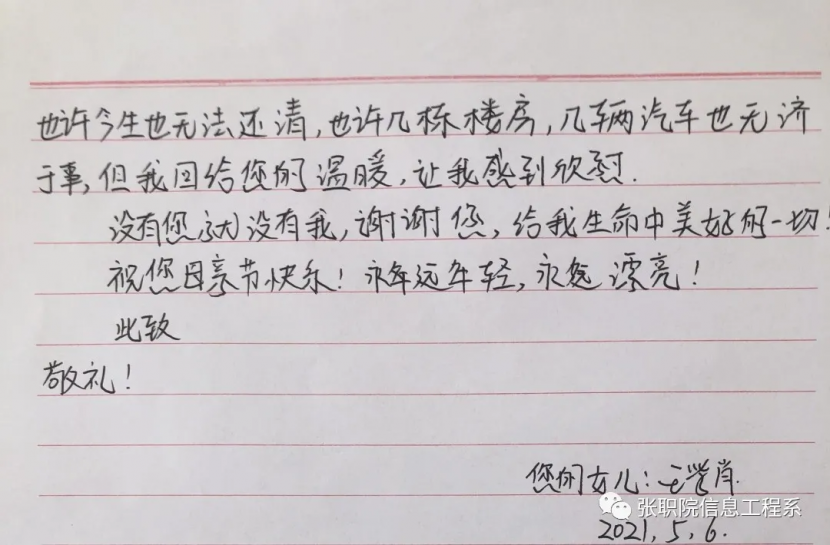 也许今生也无法还清,也许几栋楼房,几辆汽车也无济
于事,但我回给您的温暖,让我感到欣慰.
没有您就没有我,谢谢您,给我生命中美好的一切!
祝您母亲节快乐!永年远年轻,永远漂亮!
此致
敬礼!
您的女儿:王肖
张职院信息工程系
2021,5,6.